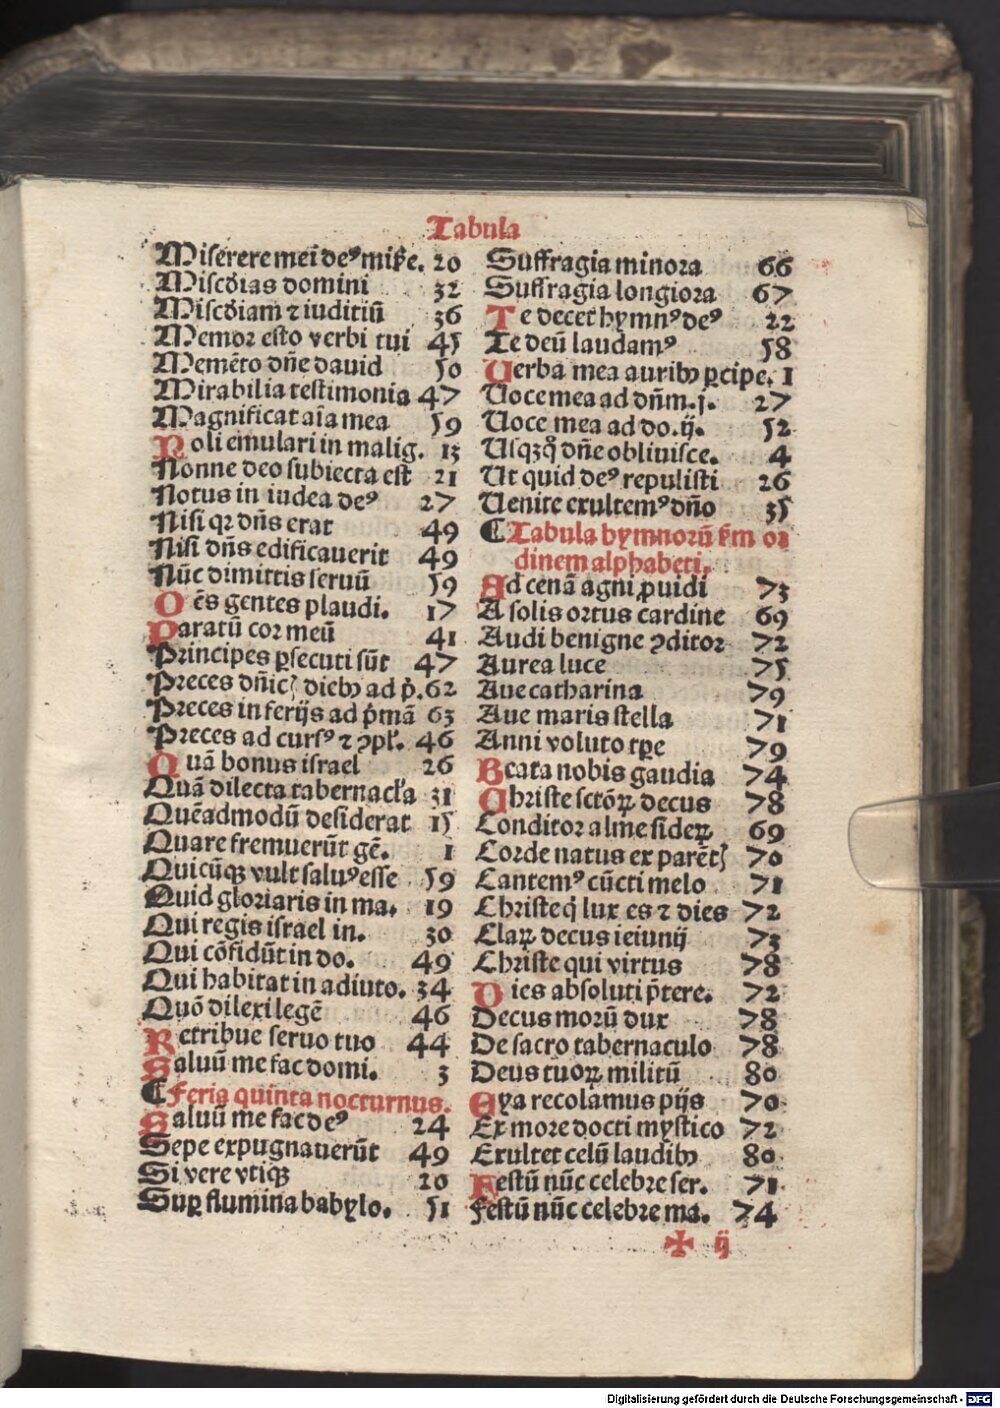 Tabula
Miserere mei deꝰ miẜe. 20
Misc̄dias domini 32
Misc̄diam ⁊ iuditiū 36
Memor esto verbi tui 45
Memēto dn̄e dauid 50
Mirabilia testimonia 47
Magnificat aīa mea 59
Noli emulari in malig. 13
Nonne deo subiecta est 21
Notus in iudea deꝰ 27
Nisi qꝛ dn̄s erat 49
Nisi dn̄s edificauerit 49
Nūc dimittis seruū 59
Oēs gentes plaudi. 17
Paratū cor meū 41
Principes ꝑsecuti sūt 47
Preces dn̄icꝭ dieb9 ad p̄. 62
Preces in ferijs ad p̄mā 63
Preces ad cursꝰ ⁊ ꝯpƚ. 46
Quā bonus israel 26
Quā dilecta tabernacƚa 31
Quēadmodū desiderat 15
Quare fremuerūt gē. 1
Quicūqꝫ vult saluꝰ esse 59
Quid gloriaris in ma. 19
Qui regis israel in. 30
Qui cōfidūt in do. 49
Qui habitat in adiuto. 34
Quō dilexi legē 46
Retribue seruo tuo 44
Saluū me fac domi. 3
¶ Feria quinta nocturnus.
Saluū me fac deꝰ 24
Sepe expugnauerūt 49
Si vere vtiqꝫ 20
Suꝑ flumina babylo. 51
Suffragia minora 66
Suffragia longiora 67
Te decet hymnꝰ deꝰ 22
Te deū laudamꝰ 58
Verba mea aurib9 ꝑcipe. 1
Voce mea ad dn̄m. j. 27
Voce mea ad do. ij. 52
Vsqꝫq̊ dn̄e obliuisce. 4
Vt quid deꝰ repulisti 26
Venite exultemꝰ dn̄o 35
¶ Tabula hymnorū ẜm or
dinem alphabeti.
Ad cenā agni ꝓuidi 73
A solis ortus cardine 69
Audi benigne ꝯditor 72
Aurea luce 75
Aue catharina 79
Aue maris stella 71
Anni voluto tꝑe 79
Beata nobis gaudia 74
Christe sctōꝝ decus 78
Conditor alme sideꝝ 69
Corde natus ex parētꝭ 70
Cantemꝰ cūcti melo 71
Christe q̇ lux es ⁊ dies 72
Claꝝ decus ieiunij 73
Christe qui virtus 78
Dies absoluti p̄tere. 72
Decus morū dux 78
De sacro tabernaculo 78
Deus tuoꝝ militū 80
Eya recolamus pijs 70
Ex more docti mystico 72
Exultet celū laudib9 80
Festū nūc celebre ser. 71
Festū nūc celebre ma. 74
✠ ij
Digitalisierung gefördert durch die Deutsche Forschungsgemeinschaft - DFG